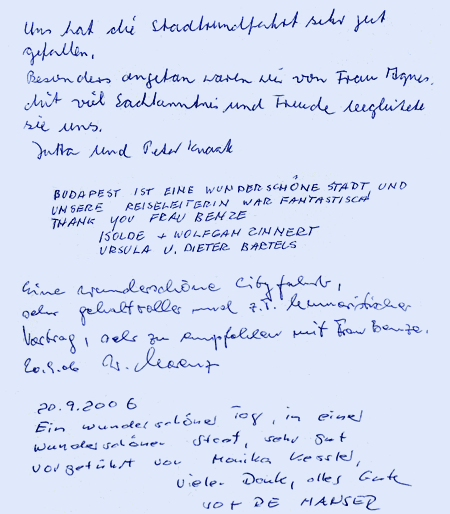 Uns hat die Stadtrundfahrt sehr gut
gefallen.
Besonders angetan waren wir von Frau Agnes.
Mit viel Sachkenntnis und Freude begleitete
sie uns.
Jutta und Peter Knaak
BUDAPEST IST EINE WUNDERSCHÖNE STADT UND
UNSERE REISELEITERIN WAR FANTASTISCH
THANK YOU FRAU BENZE
ISOLDE + WOLFGAN ZINNERT
URSULA U. DIETER BARTELS
Eine wunderschöne Cityfahrt,
sehr gehaltvoller und z.T. humoristischer
Vortrag, sehr zu empfehlen mit Frau Benze.
20.9.06
20.9.2006
Ein wunderschöner Tag, in einer
wunderschönen Stadt, sehr gut
vorgeführt von Monika Kessler,
vielen Dank, alles Gute
DE MANSER